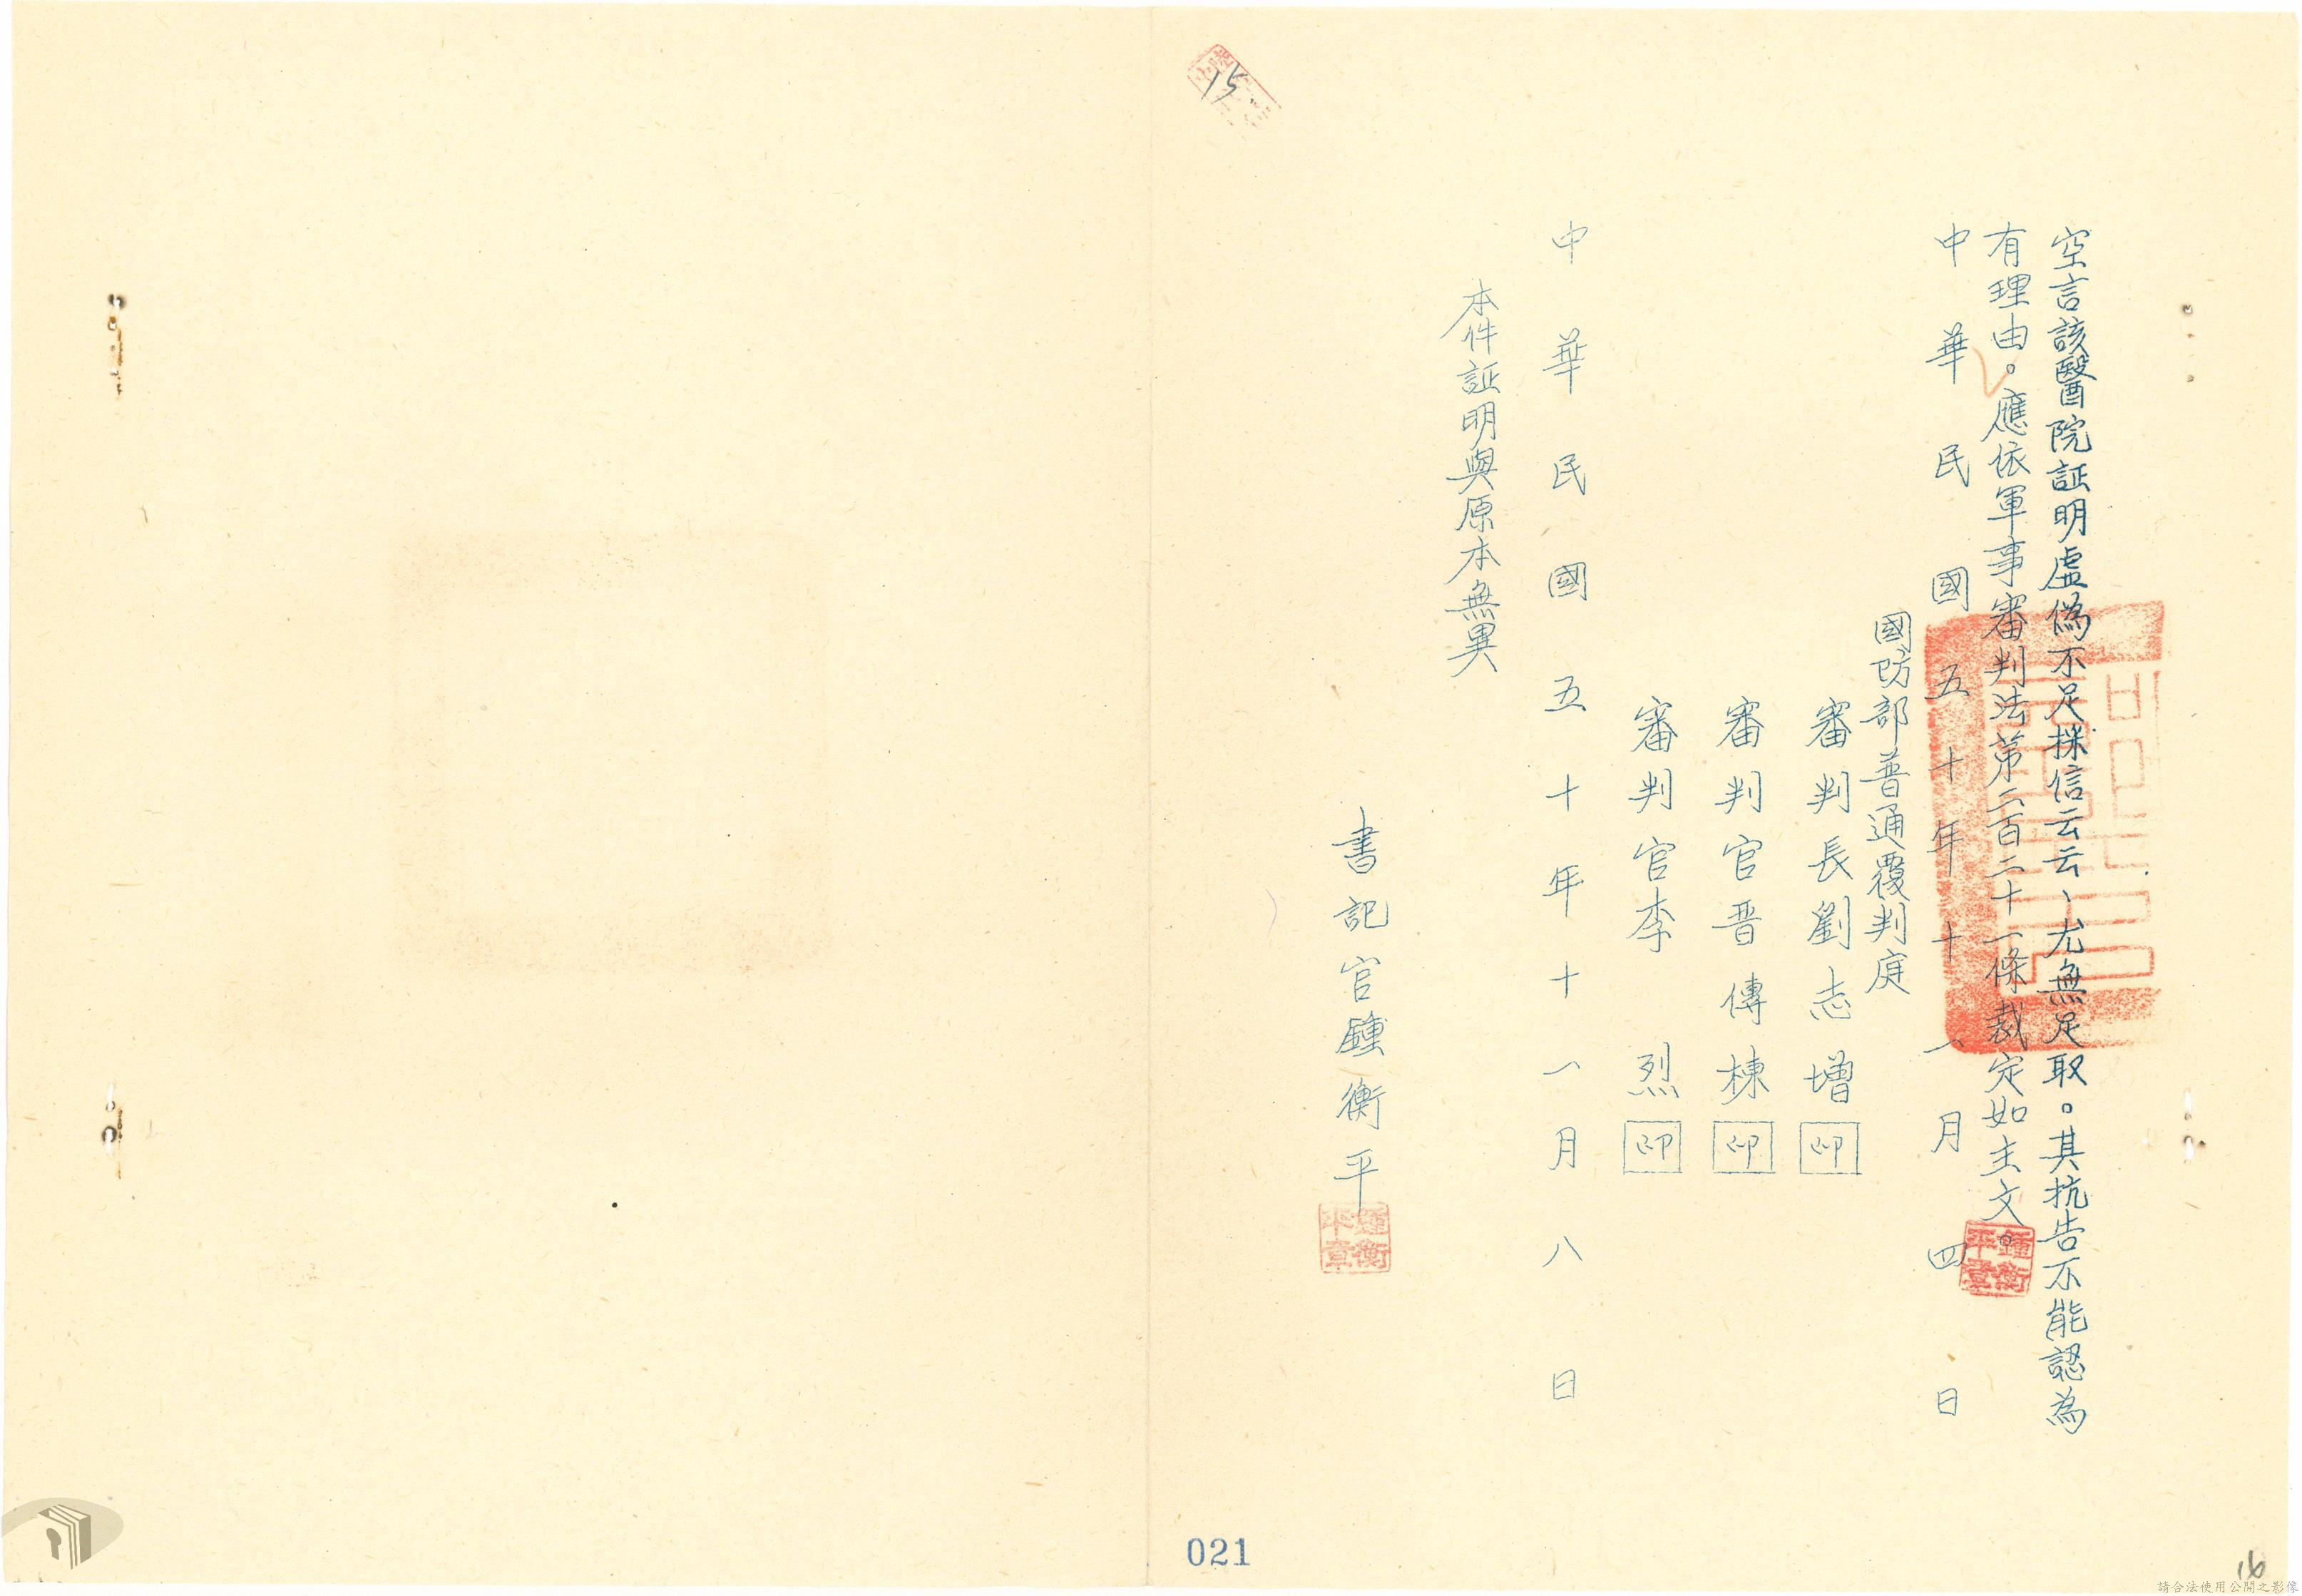 空言該醫院証明虛偽不足採信云云、尤無足取。其抗告不能認為
有理由。應依軍事審判法第二百二十一條裁定如主文。
中華民國五十年十一月四日
國防部普通覆判庭
審判長劉志增印
審判官晋傳棟印
審判官李烈印
中華民國五十年十一月八日
本件証明與原本無異
書記官鍾衡平
鍾衡平章
鍾衡平章
15
021
16
請合法使用公開之影像